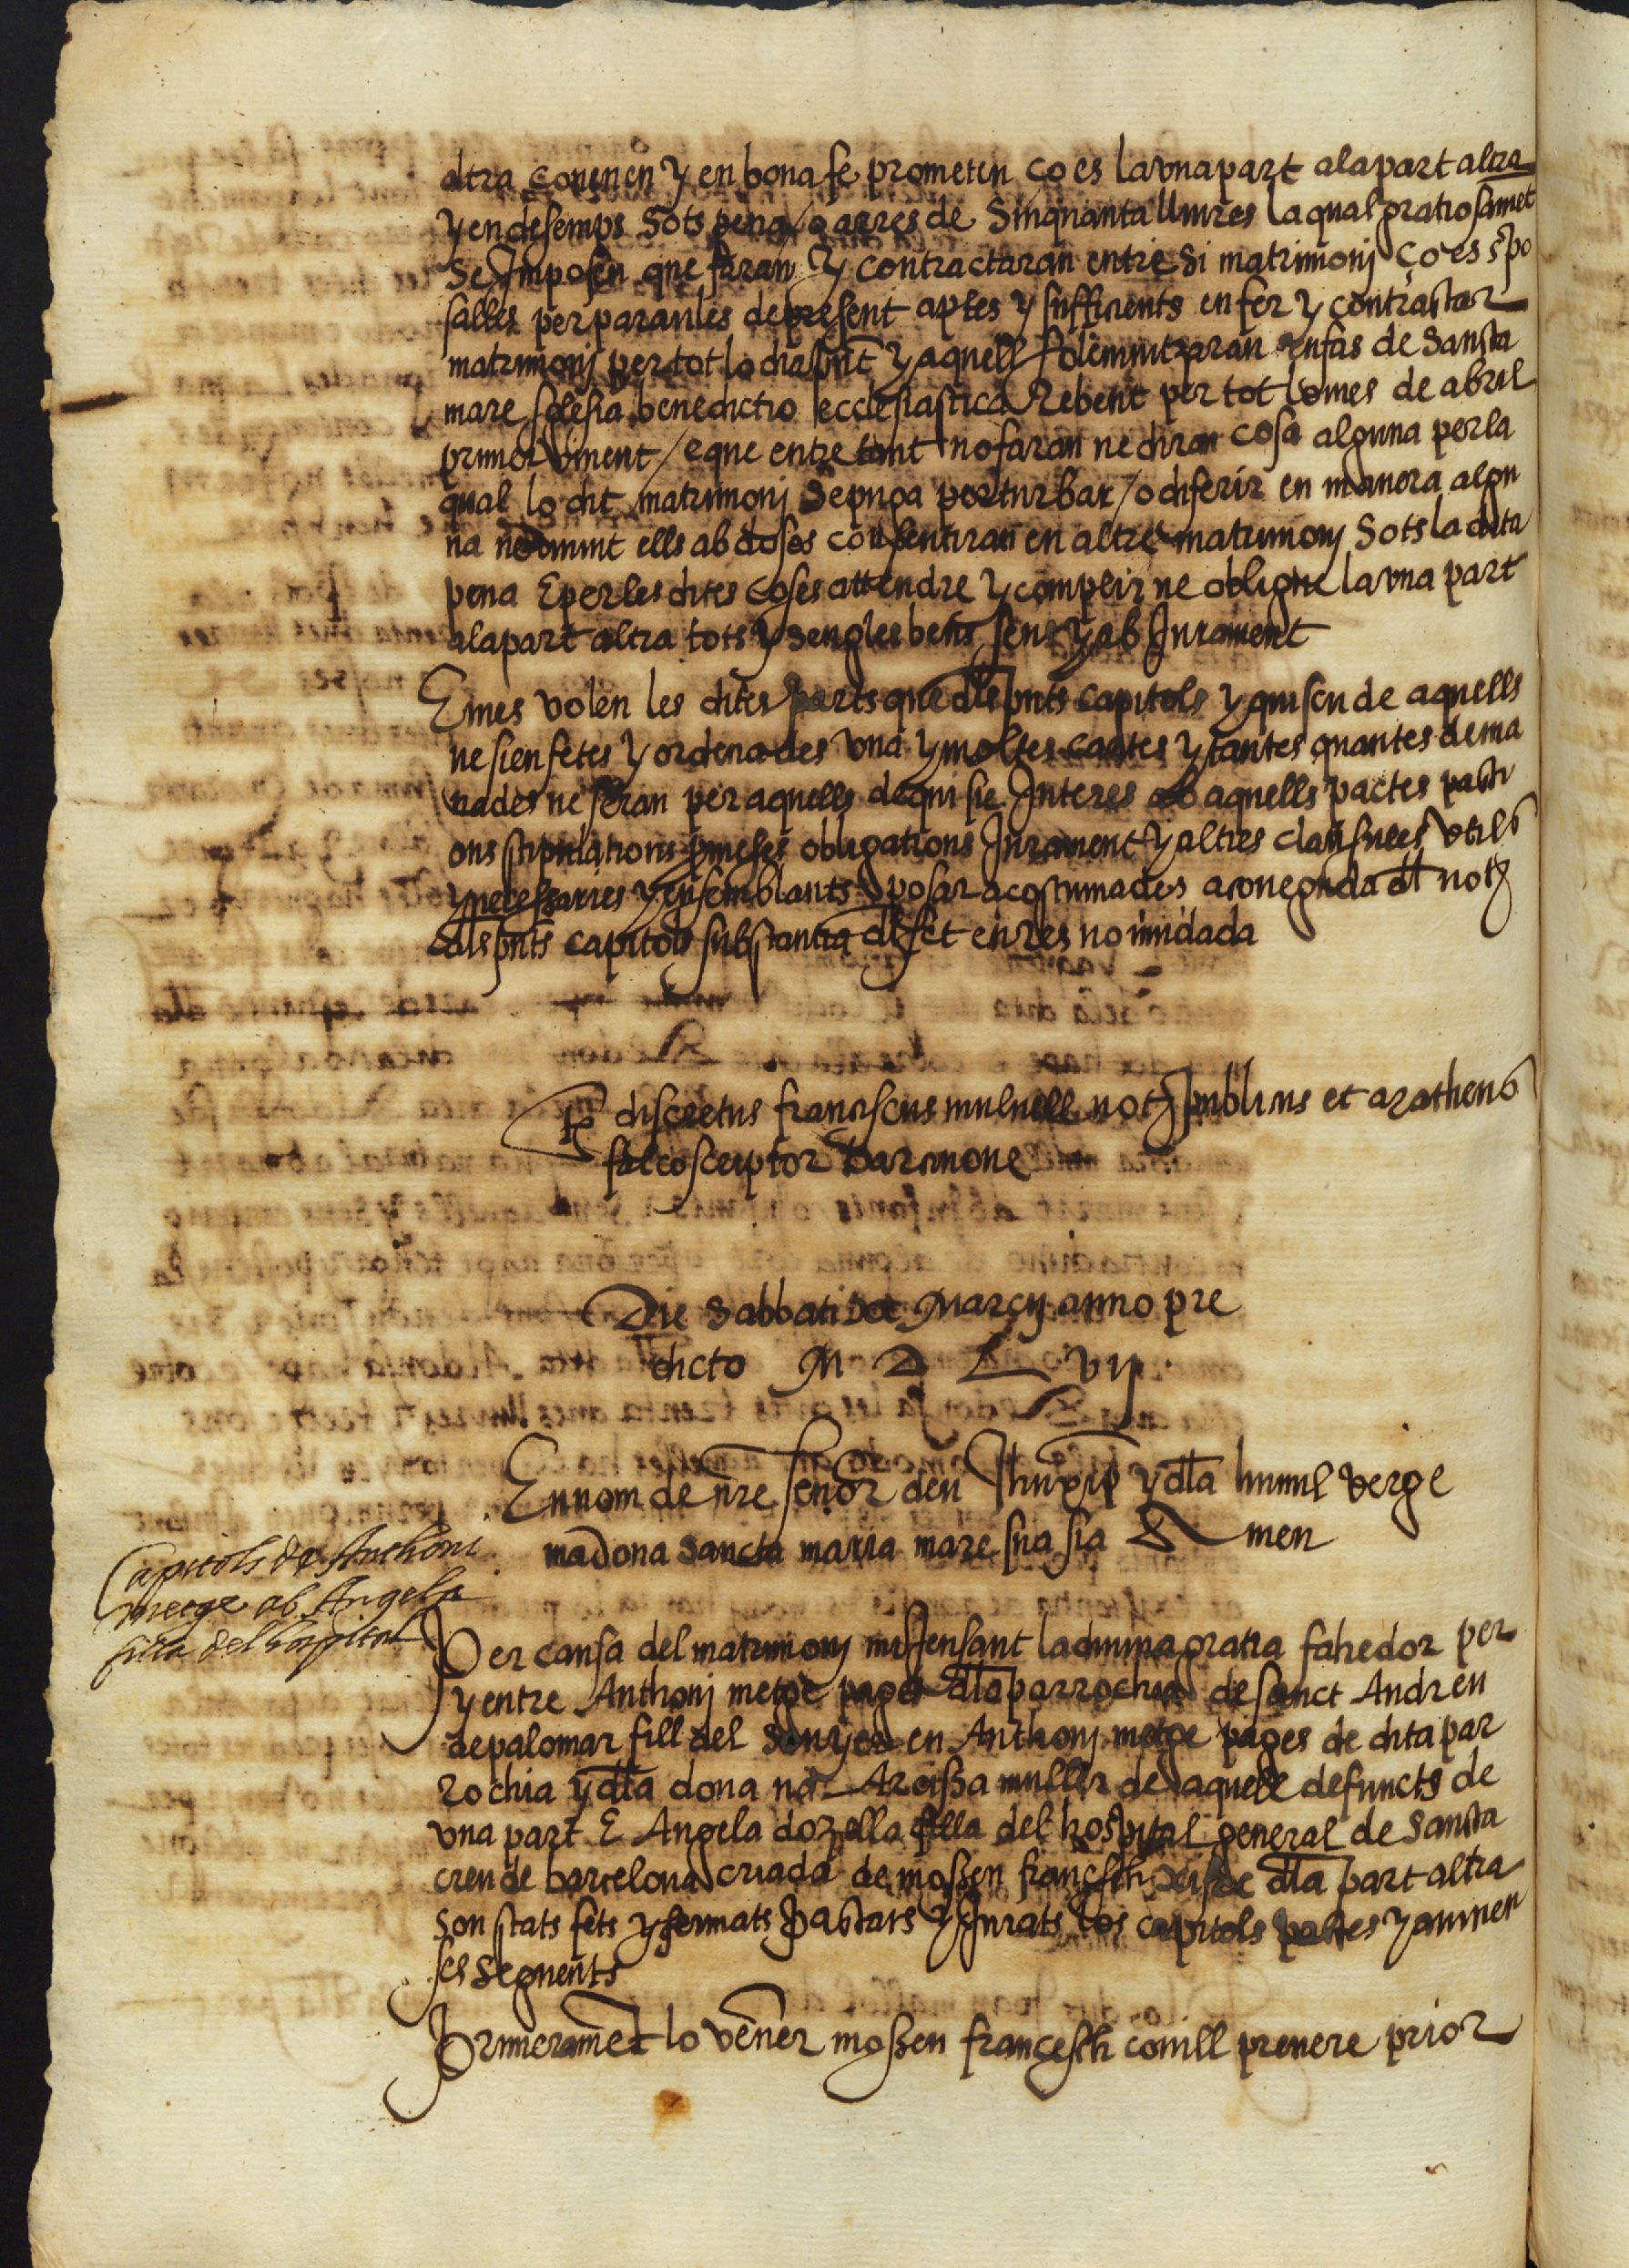 altra conenen y en bona fe prometen ço es la vna part a la part altra
y en desemps Sots pena / o arres de Sinquanta lliures la qual gratiosamēt
Se Imposen que faran y contractaran entre Si matrimonj ço es spo
salles per paraules de present aptes y sufficients en fer y contractar
matrimonj per tot lo dia pnt y aquell solemnitzaran en fas de Sancta
mare sglesia benedictio ecclesiastica Rebent per tot lo mes de abril
primer vinent / e que entre tant no faran ne diran cosa alguna per la
qual lo dit matrimonj Se puga perturbar / o diferir en manera algu
na ells ab doses consentiran en altre matrimonj Sots la dita
pena E per les dites coses attendre y complir ne obligue la vna part
a la part altra tots y sengles bens sens y ab Jurament
E mes volen les dites parts que dls pnts capitols y quiscu de aquells
ne sien fetes y ordenades vna y moltes cartes y tantes quantes dema
nades ne seran per aquells de qui sie Interes ab aquells pactes pacti
ons stipulations obligations Jurament y altres clausules vtils
y necessaries y en semblants posar acostumades a coneguda dl notz
dls pnts capitols substantia d fet en res no mudada
Ts discretus franciscus mulnell notz publicus et arathens
falco scriptor Barcinone
Die Sabbati Marcij anno pre
dicto M D L vij
En nom de nre senor deu Jhu xp y dla humil verge
madona Sancta maria mare sua sia Amen
Capitols de Anthoni
meege ab Angela
filla del hospital
Per causa del matrimonj missensant la diuina gratia fahedor per
y entre Anthonj metge pages dla parrochia de sanct Andreu
de palomar fill del Senyer en Anthonj metge pages de dita par
rochia y dla dona na Arcissa muller de aquell defuncts de
vna part E Angela dozella filla del hospital general de Sancta
creu de barcelona criada de mossen francesch dla part altra
son stats fets y fermats pactats y Jurats los capitols pactes y auinen
ses seguents
Primeramēt lo vēner mossen francesch conill preuere prior